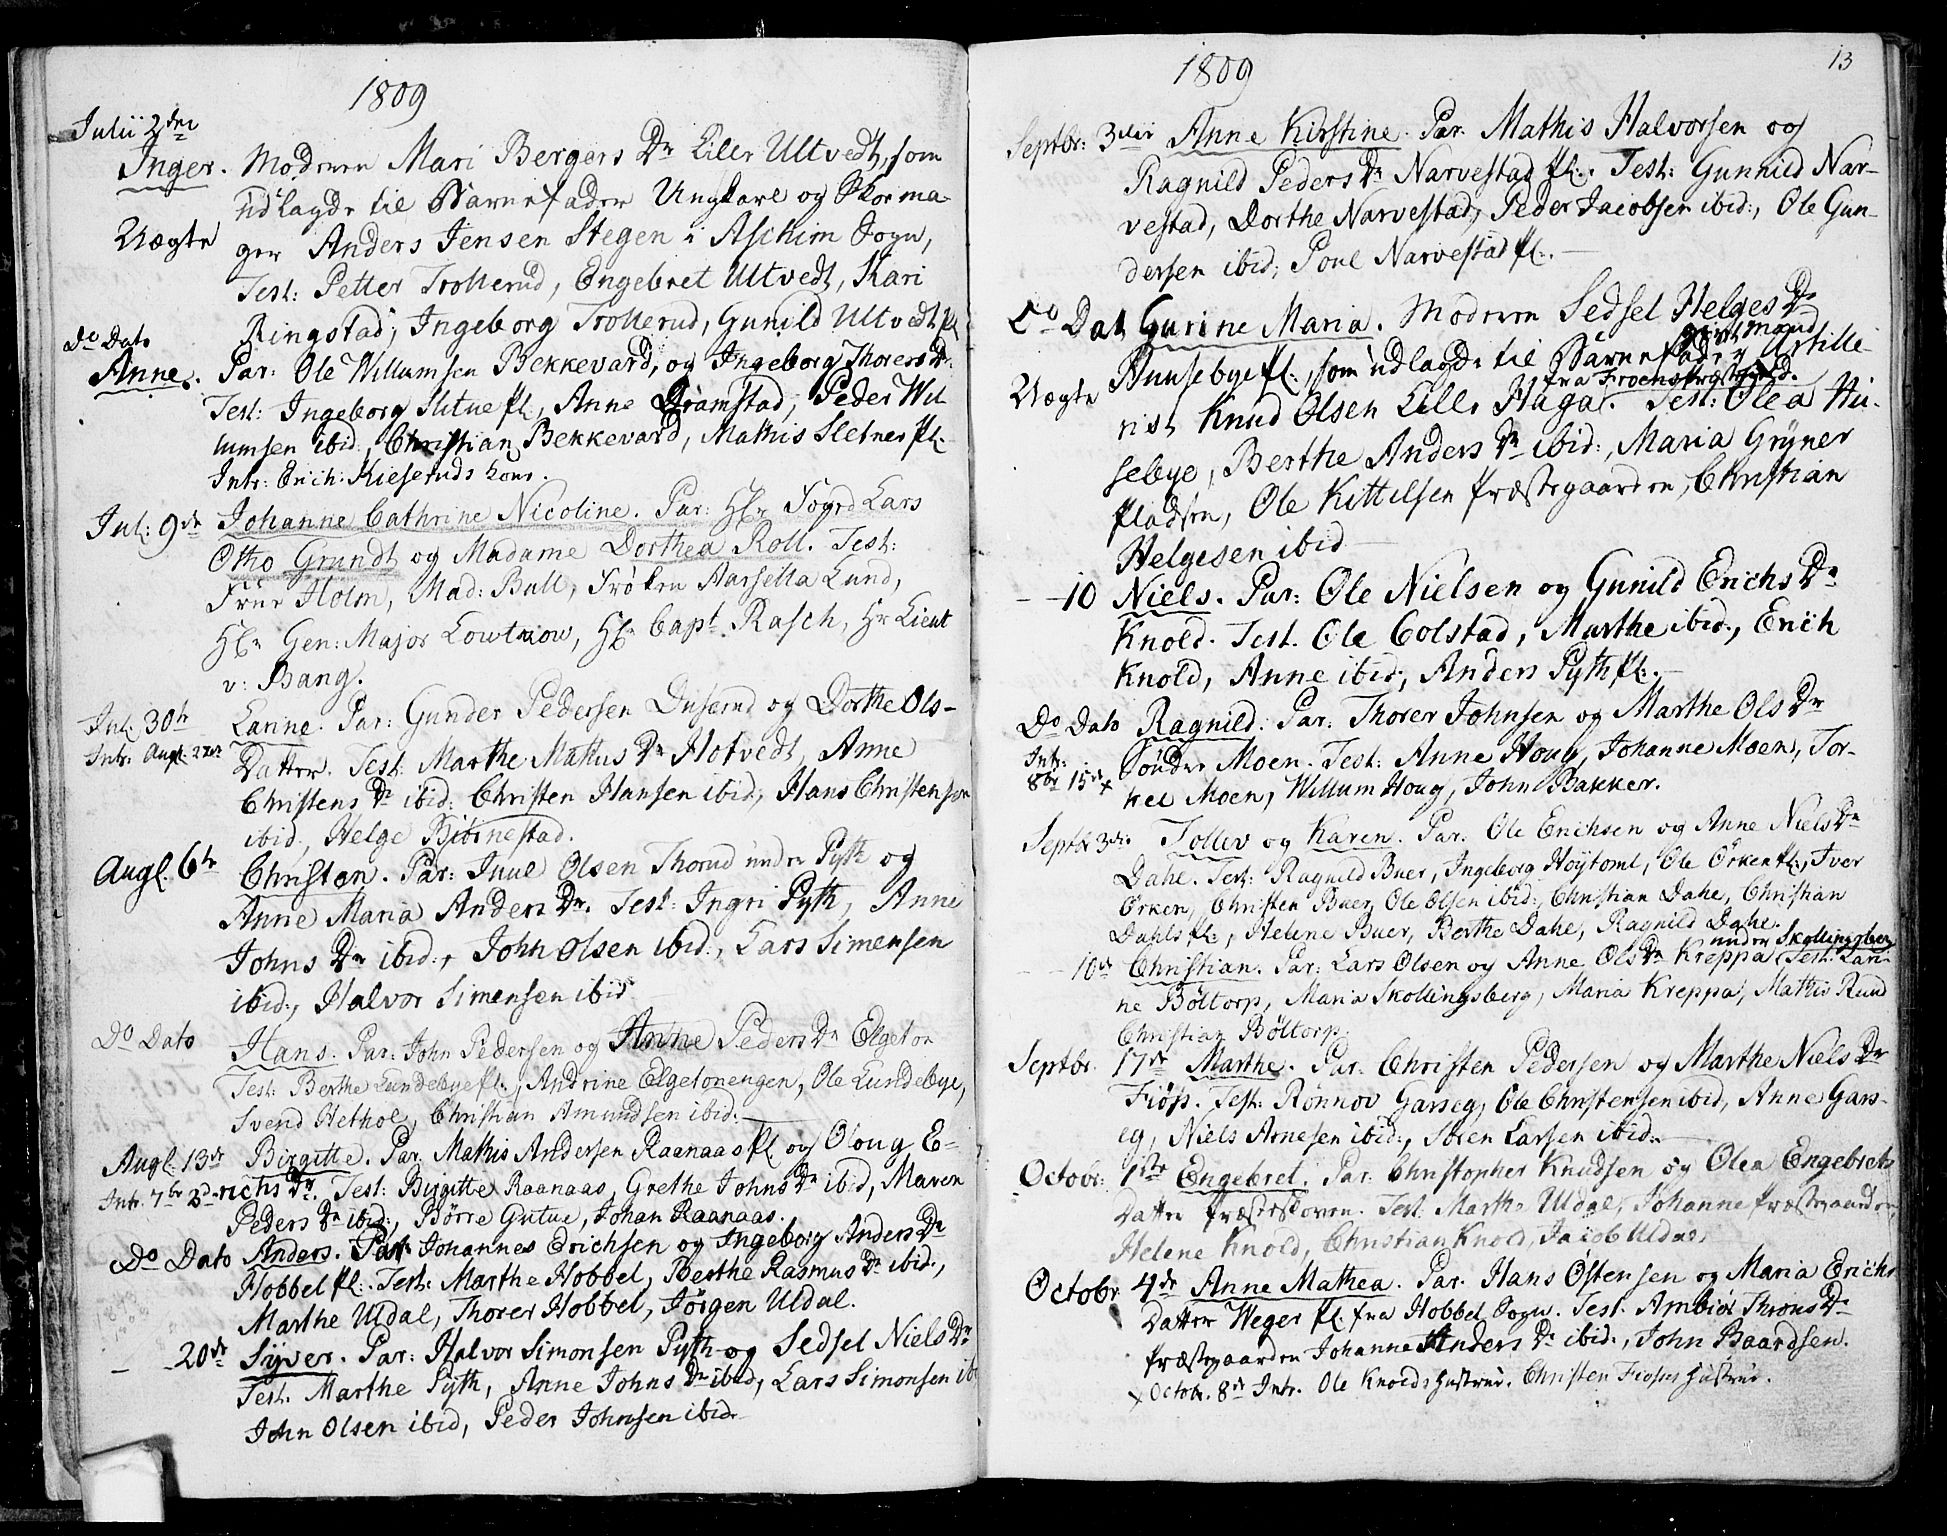 1809
Julii 2den
Inger. Moderen Mari Bergers Dr Lille Ultvedt, som
udlagde til Barnefader Ungkarl og Skoma-
Uægte
ger Anders Jensen Stegen i Aschim Sogn,
Test: Petter Trollerud, Engebret Ultvedt, Kari
Ringstad, Ingeborg Trollerud, Gunild Ultvedt pl
Do Dato
Anne. Par: Ole Willumsen Bekkevard, og Ingeborg Thorers Dr.
Test: Ingeborg Slitue pl., Anne Dramstad, Peder Wil
lumsen ibid, Christian Bekkevard, Mathis Sletner pl.
Intr: Erich: Kieseruds kone.
Jul: 9de Johanne Cathrine Nicoline. Par: Hr. Sogpr Lars
Otho Grundt og Madame Dorthea Roll. Test:
Frue Holm, Mad: Bull, Frøken Aarsella Lund,
Hr. Gen: Major Lowtzow, Hr. Capt. Rasch, Hr Lieut
v: Bang.
Jul. 30te Larine. Par: Gunder Pedersen Duserud og Dorthe Ols-
Intr. Augl.
Datter. Test: Marthe Mathis Dr Hotvedt, Anne
Christens Dr ibid: Christen Hansen ibid; Hans Christensen
ibid, Helge Biørnestad.
Augl. 6te Christen. Par: Juul Olsen Thorud under Pyth og
Anne Maria Anders Dr. Test: Ingri Pyth, Anne
Johns Dr ibid:, John Olsen ibid:, Lars Simensen
ibid:, Halvor Simensen ibid
Do Dato Hans. Par: John Pedersen og Anne Peders Dr Elgeton
Test: Berthe Lundebye pl., Andrine Elgetonengen, Ole Lundebye,
Svend Hethol, Christian Amundsen ibid:
Augl: 13de Birgitte. Par. Mathis Andersen Raanaas pl og Oloug E-
Intr. 7br 3d richs Dr. Test: Birgitte Raanaas, Grethe Johns Dr ibid, Maren
Peders Dr ibid:, Børre Gutue, Johan Raanaas.
Do Dato Anders. Par Johannes Erichsen og Ingeborg Anders Dr
Hobbel pl. Test: Marthe Hobbel, Berthe Rasmus Dr ibid.,
Marthe Uldal, Thorer Hobbel, Jørgen Uldal.
- - 20de Syver. Par: Halvor Simonsen Pyth og Sedsel Niels Dr
Test. Marthe Pyth, Anne Johns Dr ibid, Lars Simonsen ib
John Olsen ibid, Peder Johnsen ibid
13
1809
Septbr: 3die Anne Kirstine. Par. Mathis Halvorsen og
Ragnild Peders Dr Narvestad pl. Test: Gunhild Nar-
vestad, Dorthe Narvestad, Peder Jacobsen ibid:, Ole Gun-
dersen ibid; Poul Narvestad pl. —
Do Dat Gurine Maria. Moderen Sedsel Helges Dr
givt Mand
Huusebye pl., som udlagde til Barnefader Artille-
fra Froens Præstegield.
Uægte
rist Knud Olsen Lille Haga. Test: Olea Hu-
sebye, Berthe Anders Dr ibid:, Maria Gryner
pladsen, Ole Kittilsen Præstegaarden, Christian
Helgesen ibid
- - 10 Niels. Par: Ole Nielsen og Gunild Erichs Dr
Knold. Test. Ole Colstad, Marthe ibid., Erich
Knold, Anne ibid:, Anders Pyth pl. —
Do Dato Ragnild. Par: Thorer Johnsen og Marthe Ols Dr
Intr:
8br 15de x
Søndre Moen. Test: Anne Houg, Johanne Moen, Tor-
kel Moen, Willum Houg, John Bakker.
Septbr 3die Tollev og Karen. Par. Ole Erichsen og Anne Niels Dr
Dahl. Test: Ragnild Buer, Ingeborg Høytoml, Ole Ørken pl., Iver
Ørken, Christen Buer, Ole Olsen ibid:, Christian Dahl, Christian
Dahls pl:, Helene Buer, Berthe Dahl, Ragnild Dahl.
under Skollingsberg
- - 10de Christian. Par: Lars Olsen og Anne Ols Dr Kreppa Test: Lari-
ne Bøltorp, Maria Skollingsberg, Maria Kreppa, Mathis Rud
Christian Bøltorp.
Septbr. 17de Marthe. Par. Christen Pedersen og Marthe Niels Dr
Fiøss. Test. Rønnov Garseg, Ole Christensen ibid, Anne Gars-
eg, Niels Arnesen ibid:, Søren Larsen ibid:
Octobr: 1ste Engebret. Par: Christopher Knudsen og Olea Engebrets
Datter Præsteskoven. Test. Marthe Uldal, Johanne Præstegaarden,
Helene Knold, Christian Knold, Jacob Uldal.
Octobr 4de Anne Mathea. Par. Hans Østensen og Maria Erichs
Datter Weger pl. fra Hobbel Sogn. Test. Ambiør Throns Dr
Præstegaarden Johanne Anders Dr ibid:, John Baardsen.
x Octobr. 8de Intr. Ole Knolds Hustrue. Christen Fiøsses Hustrue.